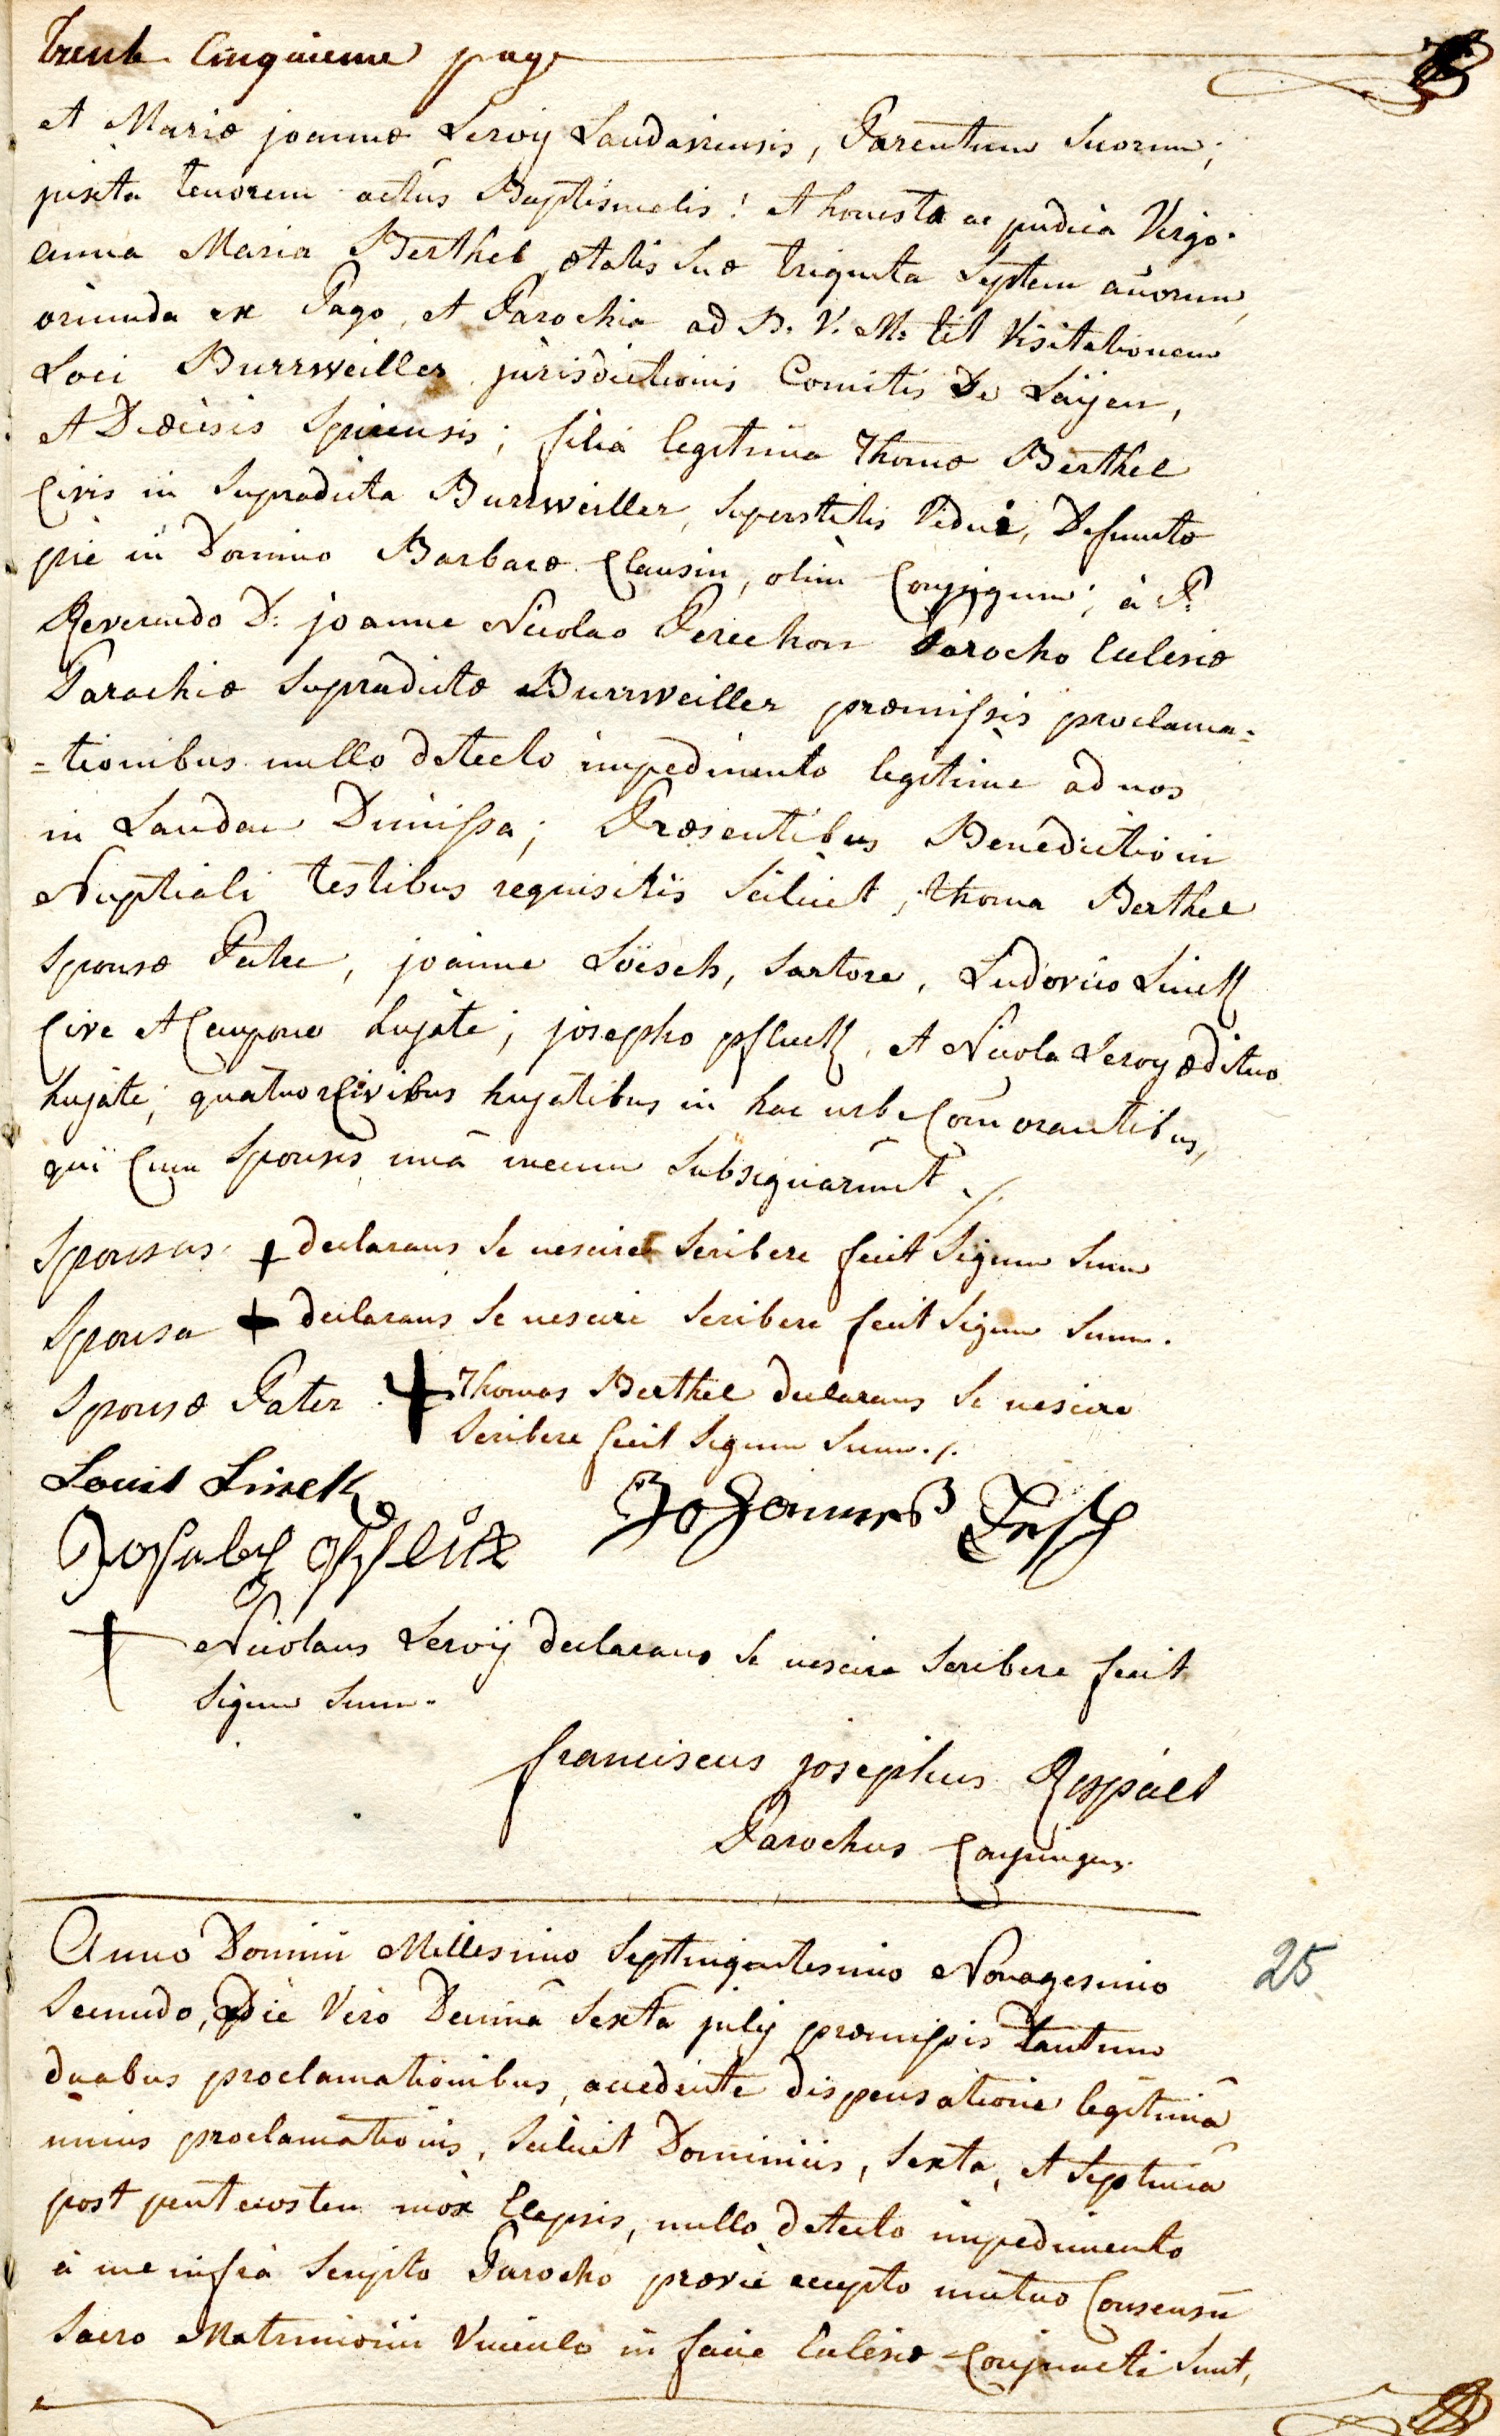 Trente Cinquieme page
et Mariæ joannæ Leroy Landaviensis, Parentum suorum;
juxta tenorem actus Baptismalis! et honesta ac pudica Virgo
anna Maria Berthel ætatis suæ triginta septem añorum,
oriunda ex Pago, et Parochia ad B. V. M: tit Visitationem
Loci Burrweiller jurisdictionis Comitis De Läyen,
et Diœcisis Spirensis; filia legitima Thomæ Berthel
Civis in supradicta Burrweiller, superstitis Vidui, Defunctæ
pie in Domino Barbaræ Clausin, olim Conjugum; à P:
Reverendo D: joanne Nicolao Perechon Parocho Eclesiæ
Parochiæ supradictæ Burrweiller præmissis proclama=
=tionibus nullo detecto impedimento legitime ad nos
in Landau Dimissa; Præsentibus Benedictioni
Nuptiali testibus requisitis scilicet, thoma Berthel
sponsæ Patre, joanne Löesch, sartore, Ludovico Linck
Cive et Caupone hujate; josepho pfluck, et Nicola Leroy ædituo
hujate; quatuor Civibus hujatibus in hac urbe Com̃orantibus,
qui Cum sponsis unà mecum subsignarunt ./.
Sponsus + declarans se nescire scribere fecit signum suum
Sponsa + declarans se nescire scribere fecit signum suum.
Sponsæ Pater + Thomas Berthel declarans se nescire
scribere fecit signum suum ./.
Louis Linck Johannes Lesch
Joseph Pflük
+ Nicolaus Leroÿ declarans se nescire scribere fecit
signum suum.
franciscus josephus
Parochus Conjungens.
Anno Domini Millesimo Septingentesimo Nonagesimo
25
Secundo, Die Vero Decimâ Sextâ julij præmissis tantum
duabus proclamationibus, accedente dispensatione legitimâ
unius proclamationis, scilicet Dominicis, sexta, et septimâ
post pentecosten mox Elapsis, nullo detecto impedimento
à me infrà scripto Parocho prævie accepto mutuo Consensu
sacro Matrimonii Vinculo in facie Eclesiæ Conjuncti sunt,